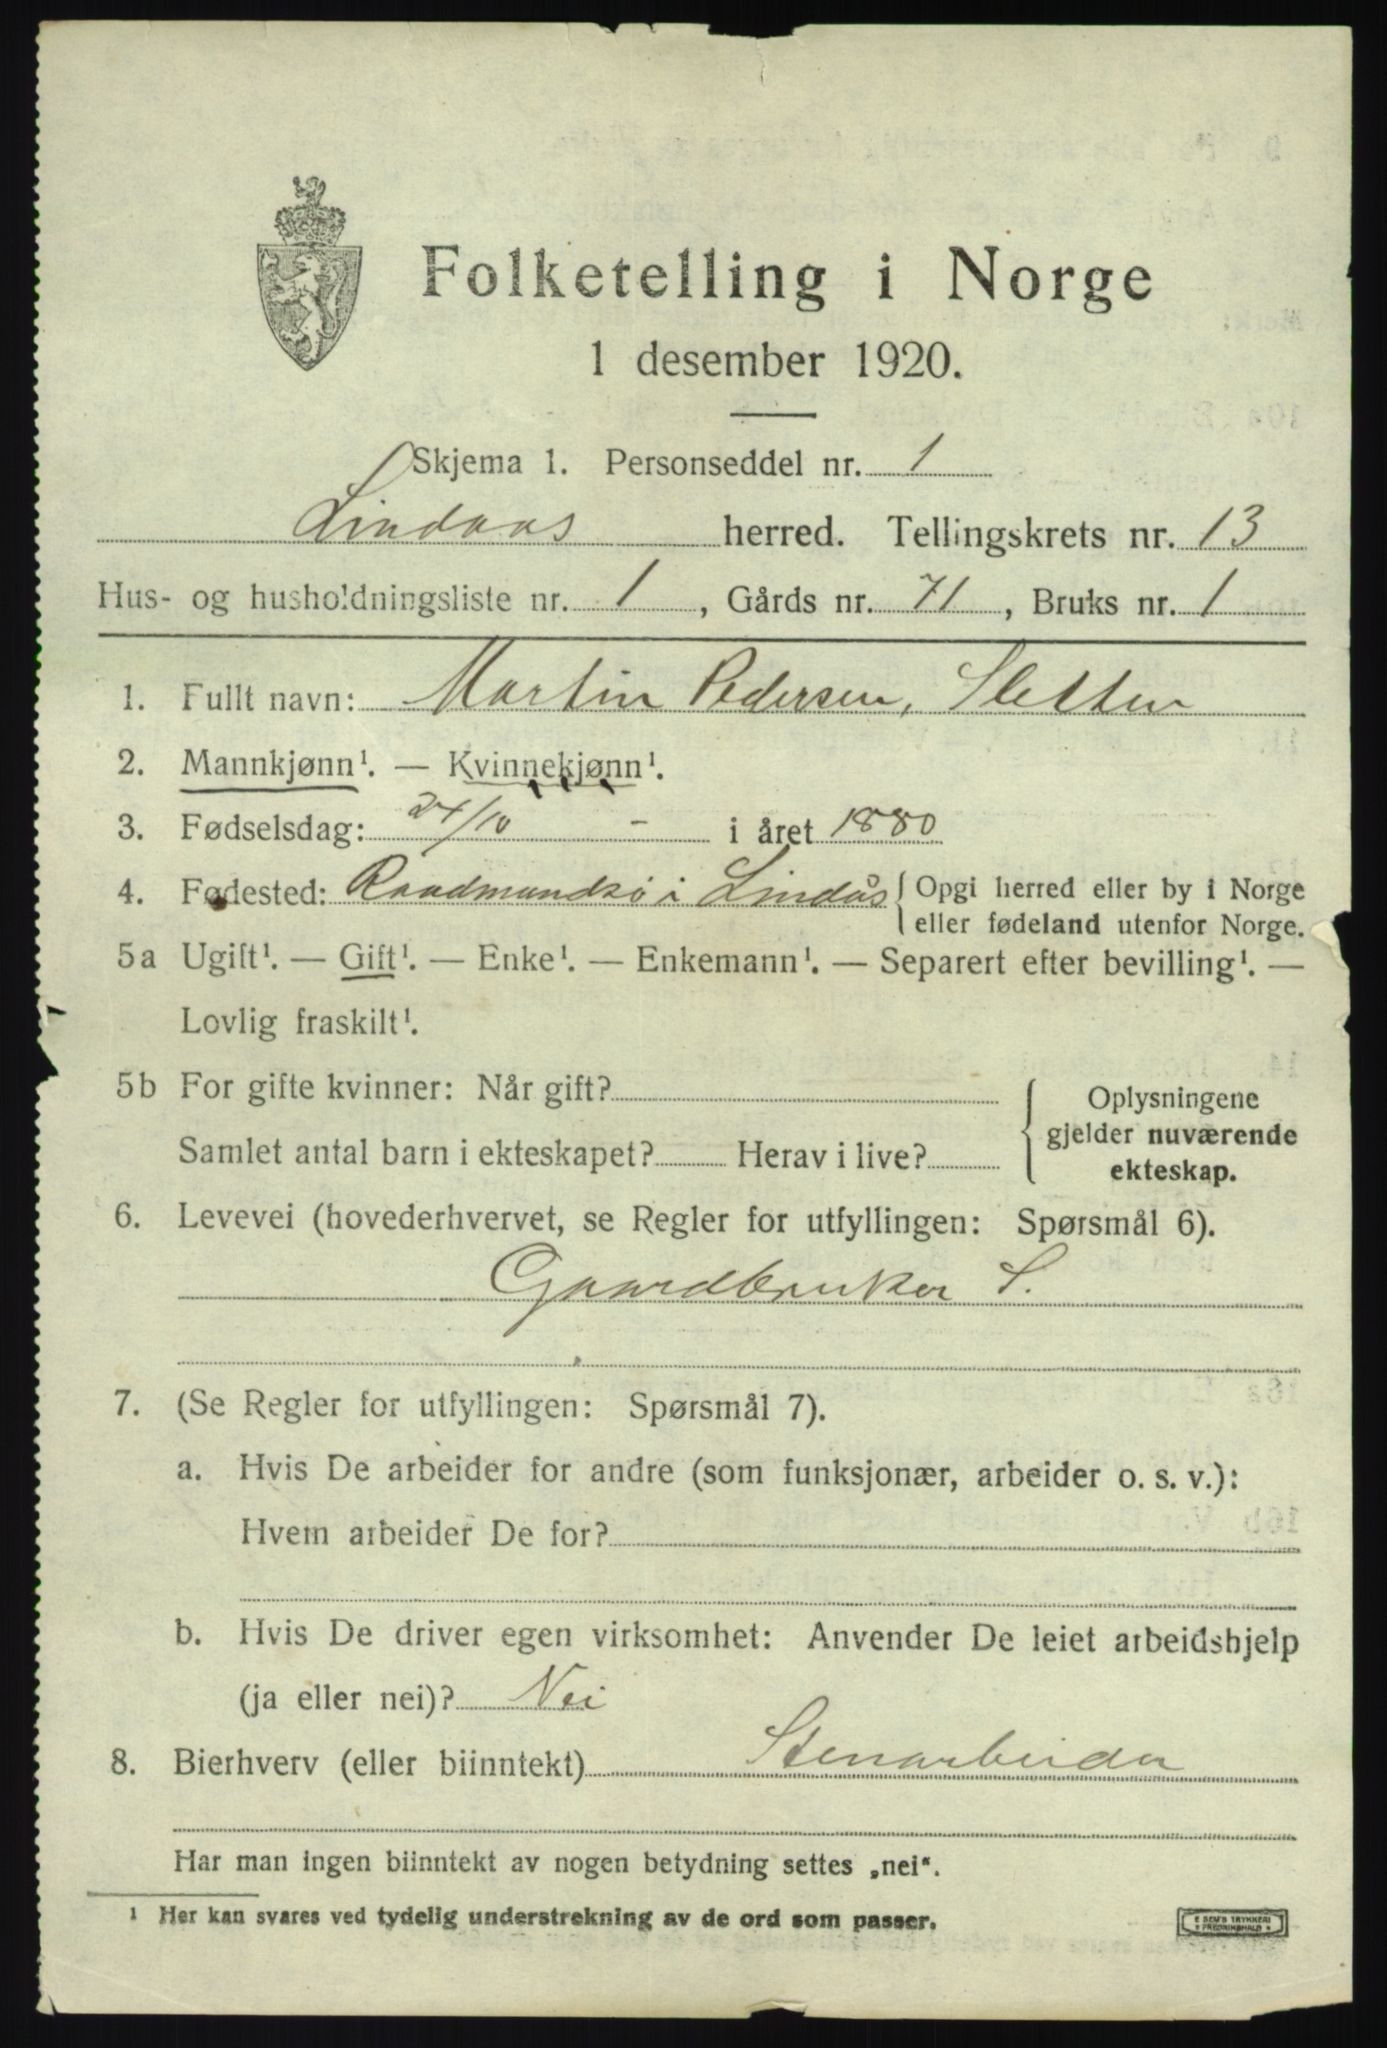 Folketelling i Norge
1 desember 1920.
Skjema 1. Personseddel nr. 1
Lindaas herred. Tellingskrets nr. 13
Hus- og husholdningsliste nr. 1, Gårds nr. 71, Bruks nr. 1
1. Fullt navn: Martin Pedersen, Sletten
2. Mannkjønn¹. — Kvinnekjønn¹.
3. Fødselsdag: 24/10 - i året 1880
4. Fødested: Raadmundsø i Lindås { Opgi herred eller by i Norge
eller fødeland utenfor Norge.
5a Ugift¹. — Gift¹. — Enke¹. — Enkemann¹. — Separert efter bevilling¹. —
Lovlig fraskilt¹.
5b For gifte kvinner: Når gift?
Samlet antal barn i ekteskapet? Herav i live?
Oplysningene
gjelder nuværende
ekteskap.
6. Levevei (hovederhvervet, se Regler for utfyllingen: Spørsmål 6).
Gaardbruker S.
7. (Se Regler for utfyllingen: Spørsmål 7).
a. Hvis De arbeider for andre (som funksjonær, arbeider o. s. v.):
Hvem arbeider De for?
b. Hvis De driver egen virksomhet: Anvender De leiet arbeidshjelp
(ja eller nei)? Nei
8. Bierhverv (eller biinntekt) Stenarbeider
Har man ingen biinntekt av nogen betydning settes „nei“.
¹ Her kan svares ved tydelig understrekning av de ord som passer.
E SEM'S TRYKKERI
FREDRIKSHALD